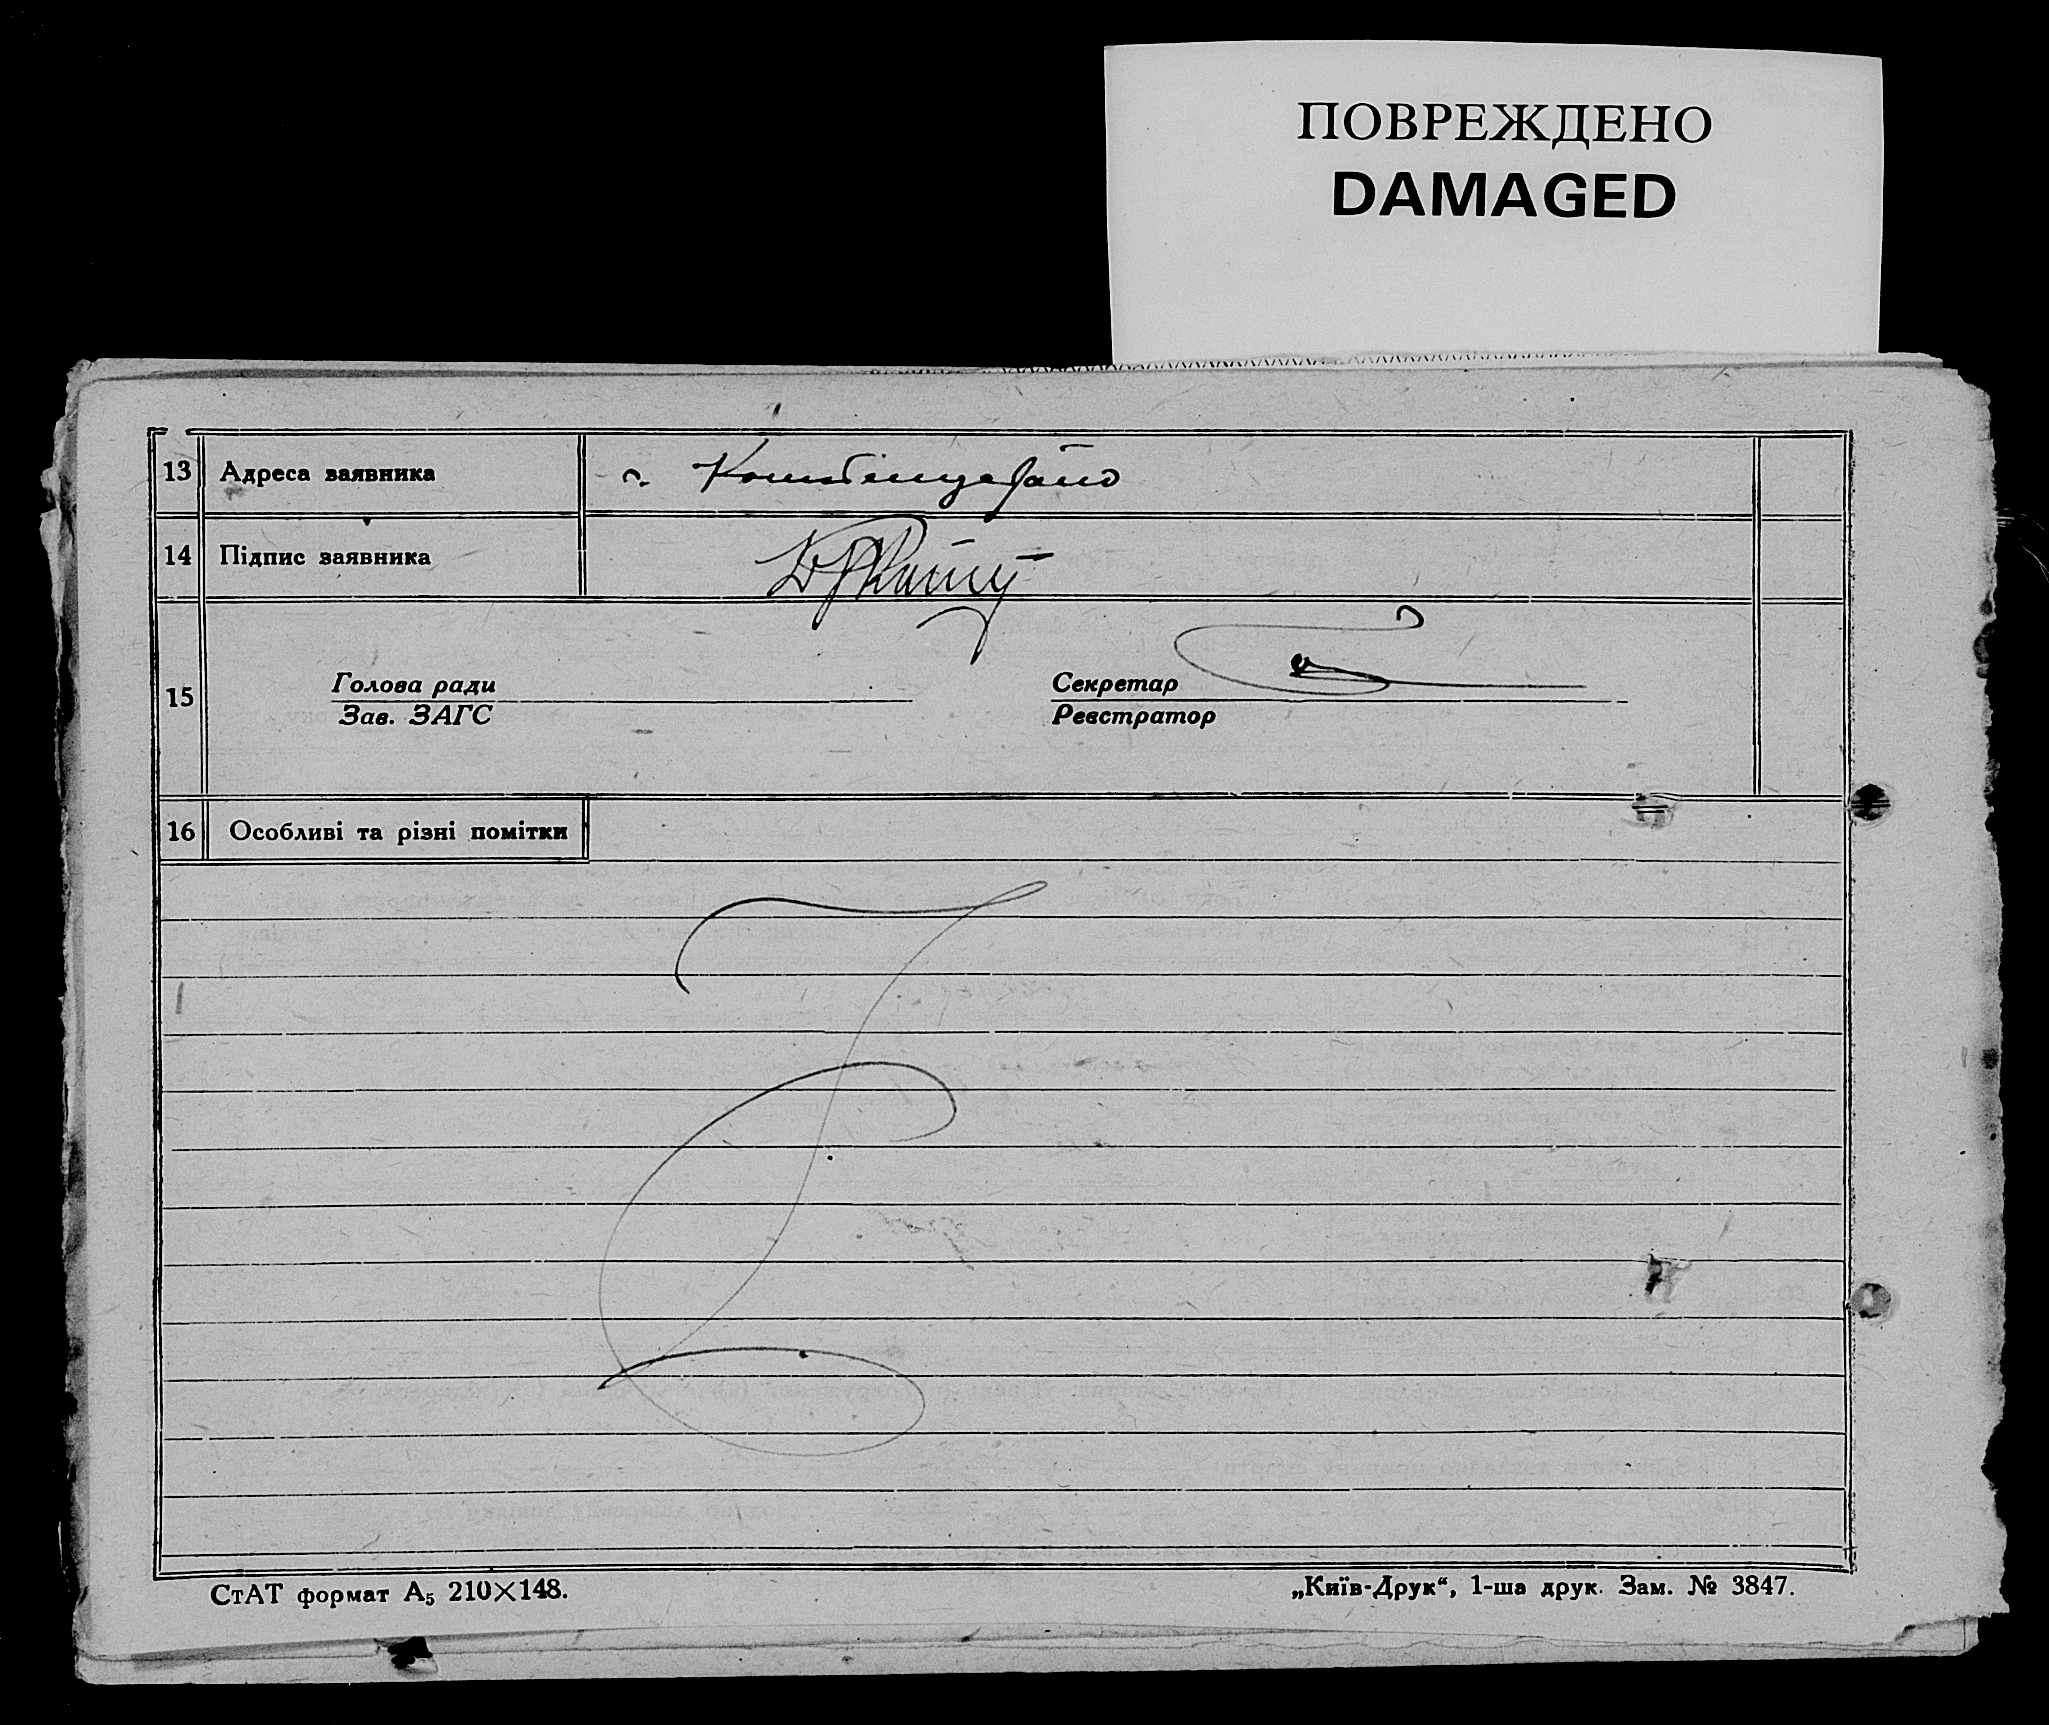 ПОВРЕЖДЕНО
DAMAGED
13 Адреса заявника с.
14 Підпис заявника
15
Голова ради Секретар
Зав. ЗАГС Реєстратор
16 Особливі та різні помітки
СтАТ формат А₅ 210×148. „Київ-Друк“, 1-ша друк. Зам. № 3847.